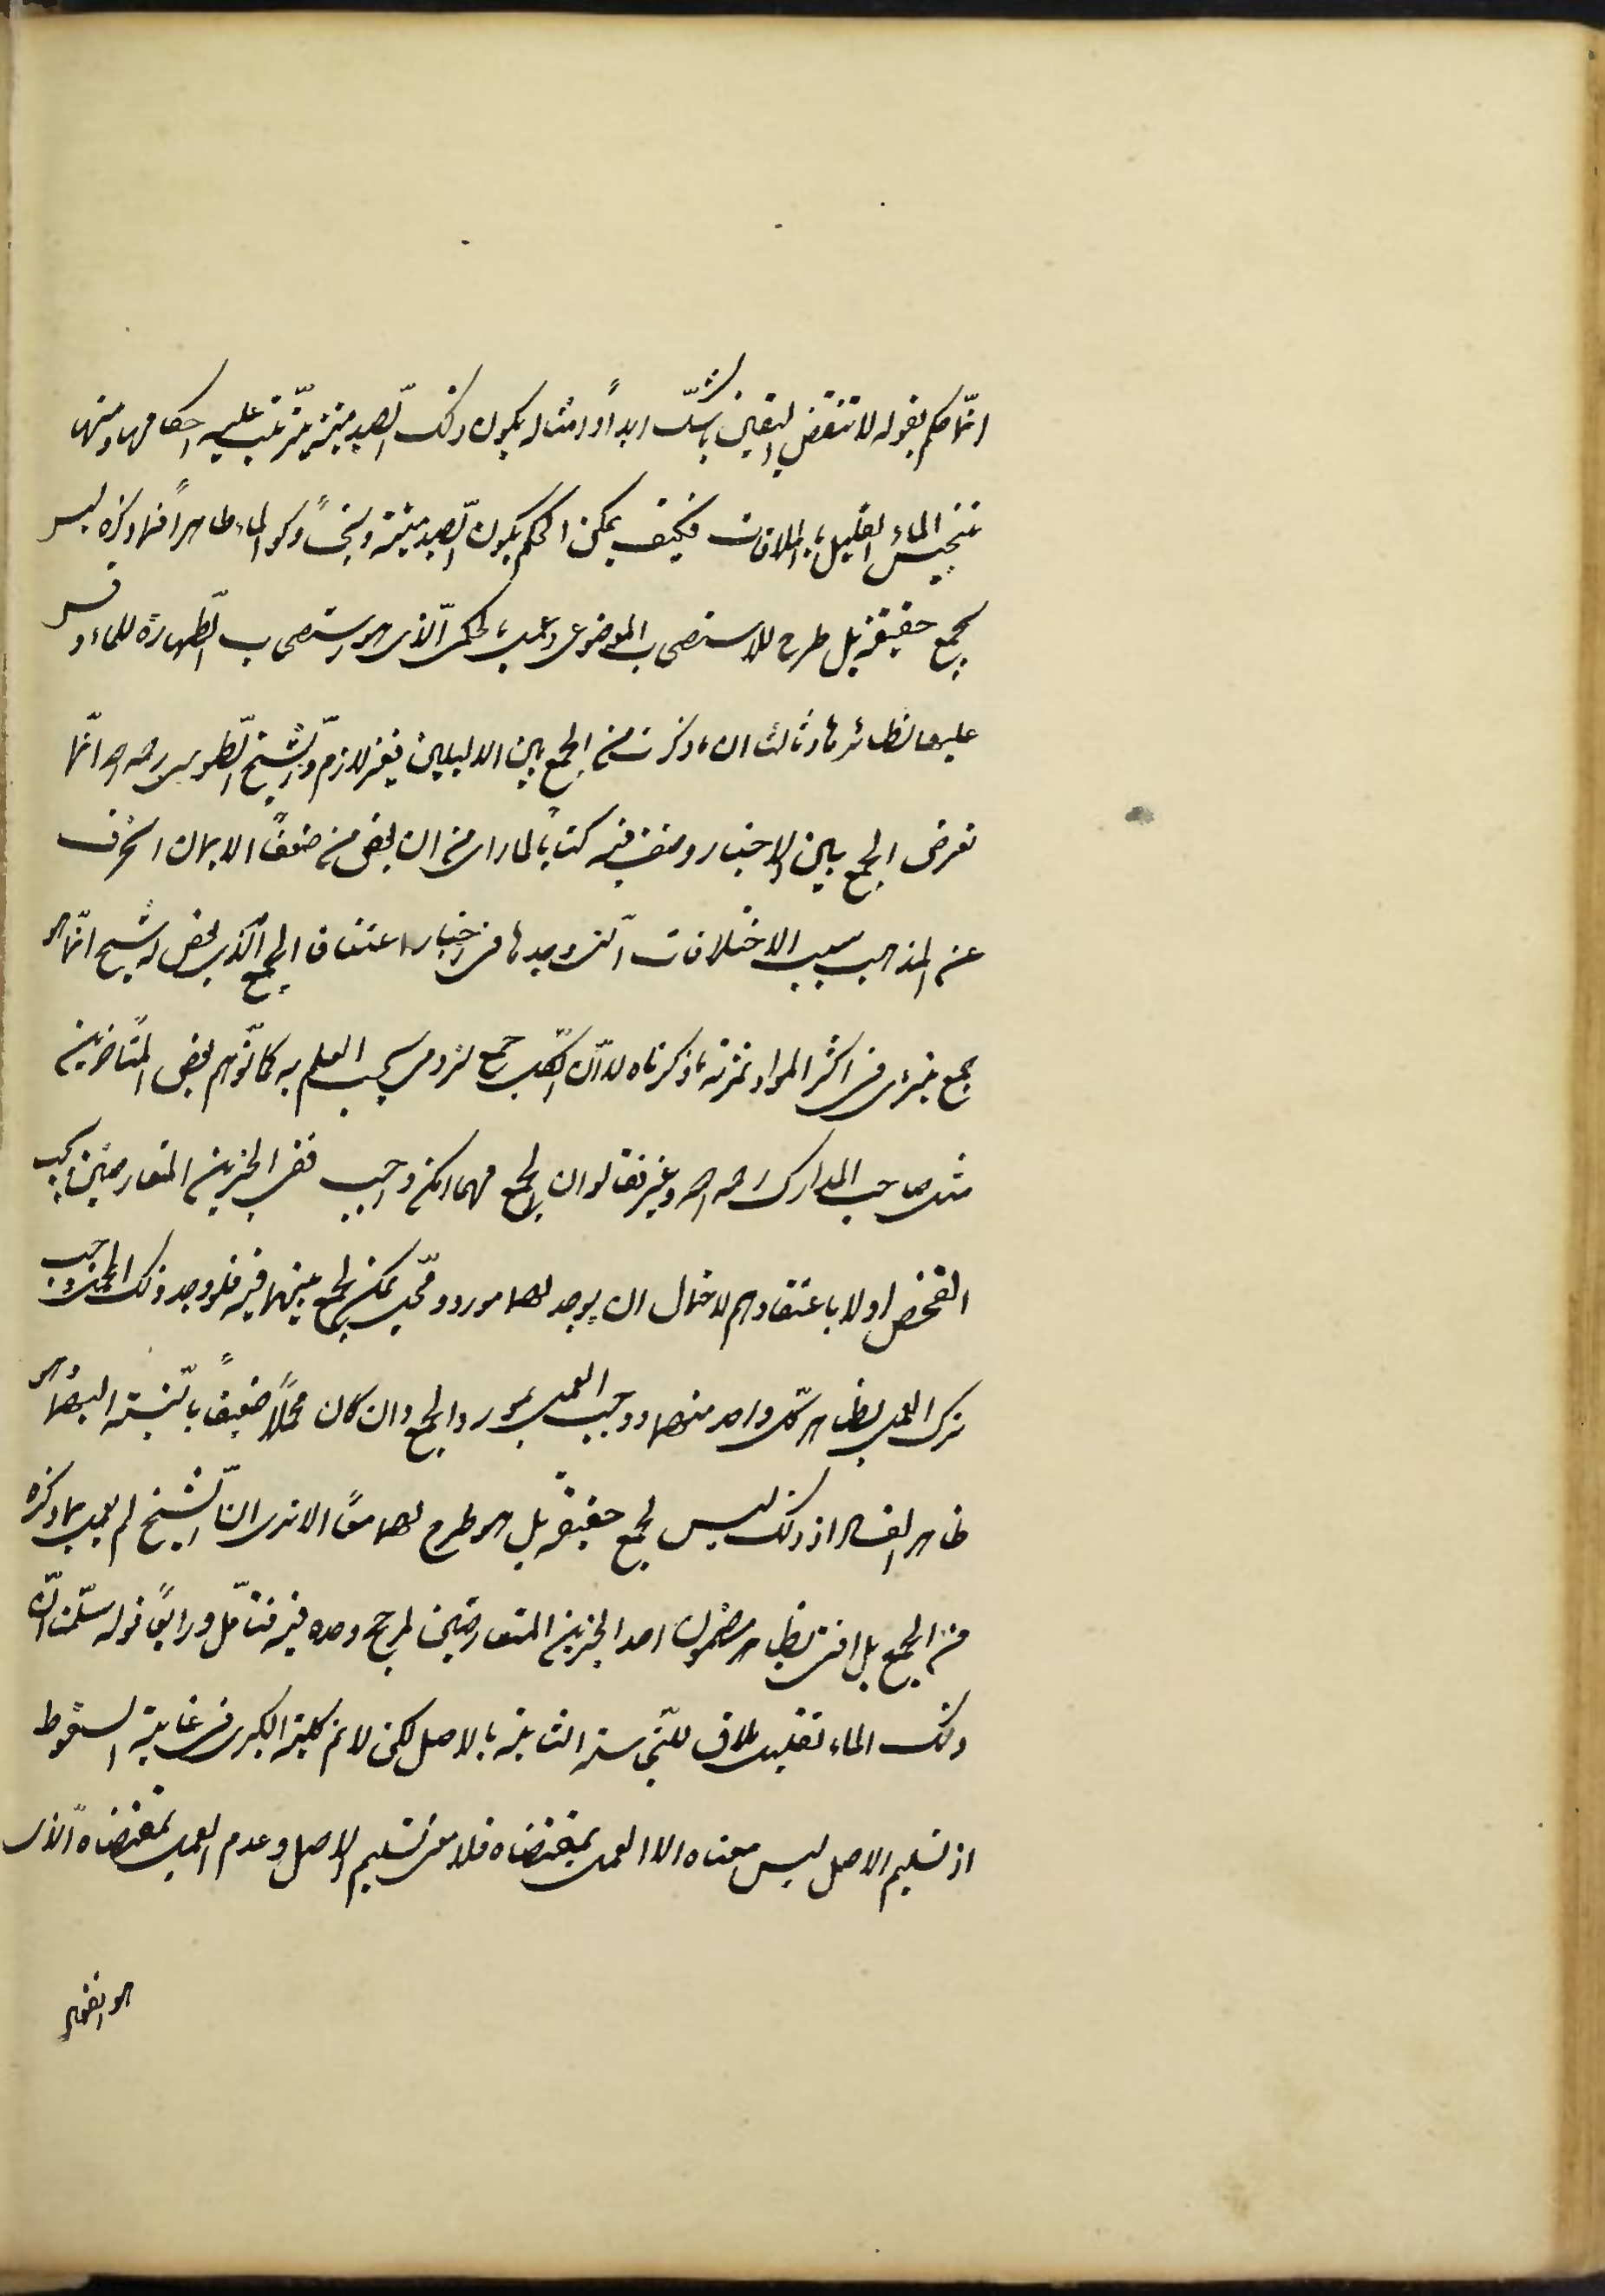 انّما حكم بقوله لا تنقض اليقين بالشكّ ابداً وامثاله بكون ذلك الصّيد ميتة يترتّب عليه احكامها ومنها
تنجيس الماء القليل بالملاقات فكيف يمكن الحكم بكون الصّيد ميتة ونجساً وكون الماء طاهراً فما ذكره ليس
بجمع حقيقة بل طرح للاستصحاب الموضوعى وعمل بالحكمى الّذى هو استصحاب الطّهارة للماء وقس
عليها نظائرها وثالثا ان ما ذكرت من الجمع بين الدليلين غير لازم والشّيخ الطّوسى رحمه الله انّما
تعرض الجمع بين الاخبار وصنف فيه كتاباً لما راى من ان بعض من ضعفاً الايمان انحرف
عن المذهب بسبب الاختلافات الّتى وجدها فى الاخبار اعتقاف الجمع الّذى بعض الشيخ انّما هو
جمع تبرّعى فى اكثر المواد ثمرته ما ذكرناه لا انّ ذلك جمع لزومى يجب العلم به كما توّهم بعض المتأخرين
مثل صاحب المدارك رحمه الله وغيره فقالو ان الجمع مهما امكن واجب ففى الخبرين المتعارضين يجب
الفحص اولا باعتقادهم لاحتمال ان يوجد لهما مورد ومحلّ يمكن الجمع بينهما فيه فلو وجد ذلك المحل وجب
ترك العمل بظاهر كلّ واحد منهما ووجب العمل بمورد الجمع وان كان محملاً ضعيفاً بالنّسبة اليهما وهو
ظاهر الفساد اذ ذلك ليس بجمع حقيقة بل هو طرح لهما معاً الا ترى انّ الشّيخ لم يعمل بما ذكره
من الجمع بل افتى بظاهر مضمون احد الخبرين المتعارضين لمرجّح وجده فيه فتأمّل ورابعاً قوله سلّمنا انّ
ذلك الماء القليل ملاق للنّجاسة الثابتة بالاصل لكن لا نم كلية الكبرى فى غاية السقوط
اذ تسليم الاصل ليس معناه الا العمل بمقتضاه فلا معنى لتسليم الاصل وعدم العمل بمقتضاه الّذى
هو انفعال